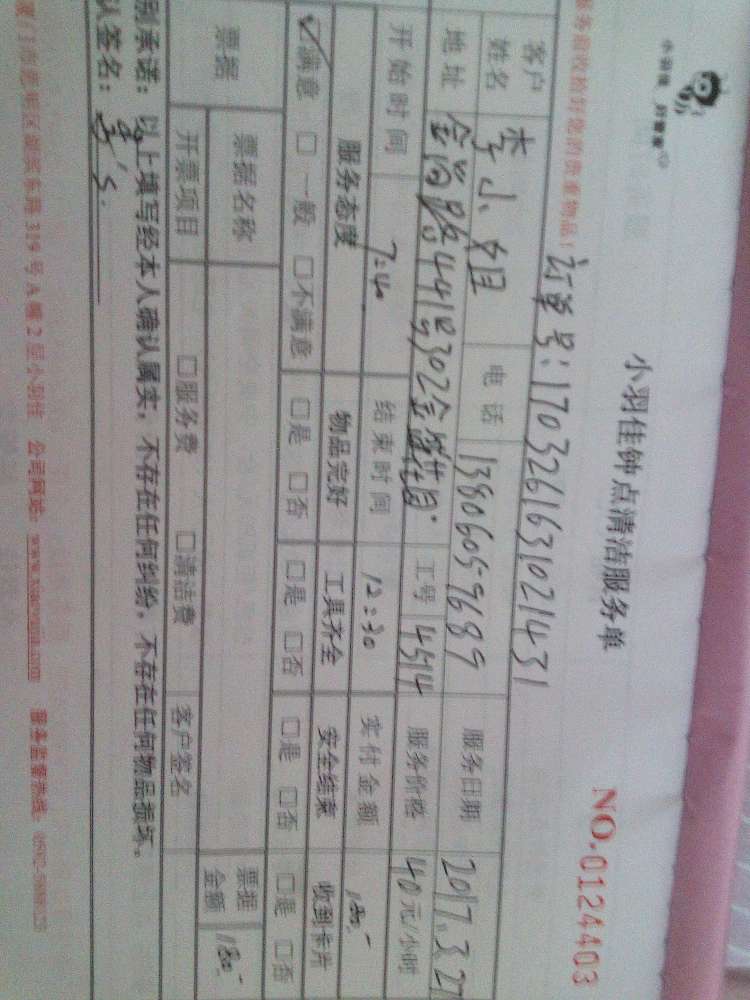 小羽佳钟点清洁服务单
NO.0124403
服务前收检好您的贵重物品!
订单号:1703261631021431
客户姓名 李小姐 电话 13806059689 服务日期 2017.3.27
地址 金尚路441号302 工号 4514 服务价格 40元/小时
开始时间 7:40 结束时间 12:30 实付金额 180-
服务态度 物品完好 工具齐全 安全结束 收到卡片
☑满意 □一般 □不满意 □是 □否 □是 □否 □是 □否 □是 □否
票据 票据名称 票据金额 180-
开票项目 □服务费 □清洁费 客户签名
别承诺:以上填写经本人确认属实,不存在任何纠纷,不存在任何物品损坏。
认签名:
319号A幢2层小羽佳 公司网站:www.xiaoyujia.com 服务监督热线: